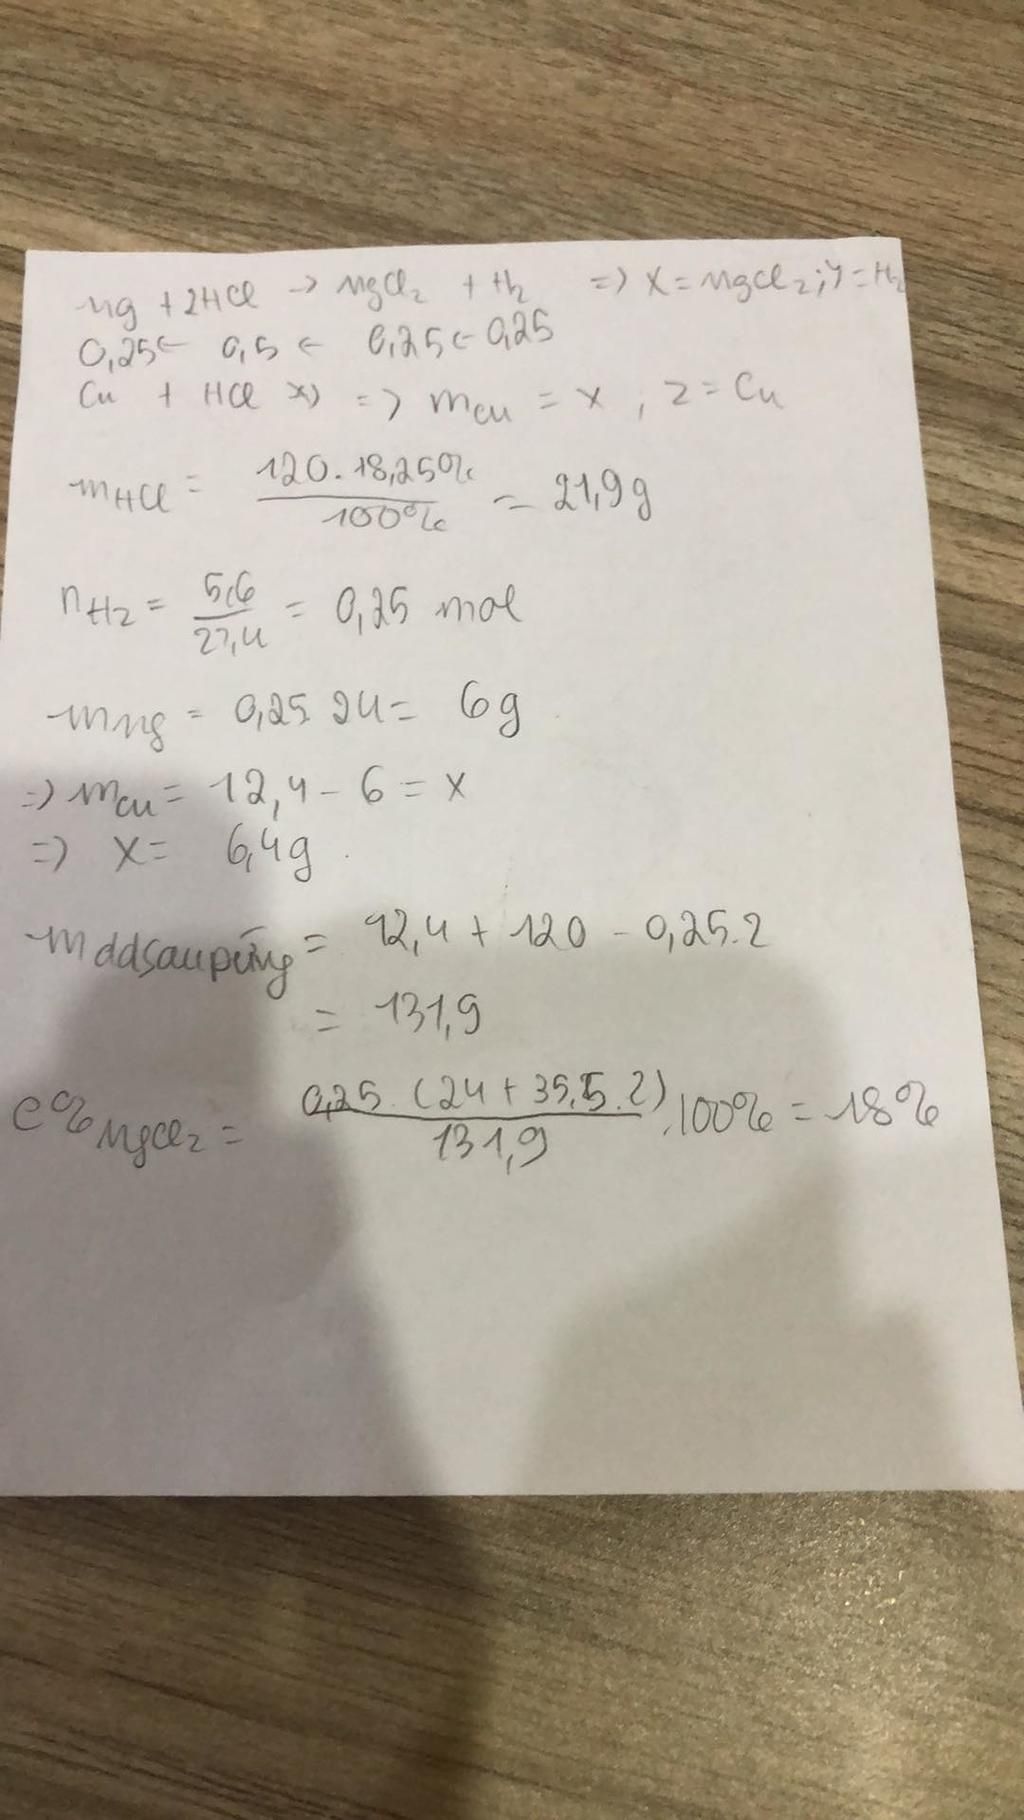 Mg + 2HCl -> MgCl₂ + H₂ => X = MgCl₂; Y = H₂
0,25 <- 0,5 <- 0,25 <- 0,25
Cu + HCl x) => mCu = x, Z = Cu
mHCl = 120.18,25% / 100% = 21,9g
nH₂ = 5,6 / 22,4 = 0,25 mol
mMg = 0,25.24 = 6g
=> mCu = 12,4 - 6 = x
=> x = 6,4g
mddsaupứng = 12,4 + 120 - 0,25.2
= 131,9
C%MgCl₂ = 0,25.(24 + 35,5.2) / 131,9 .100% = 18%